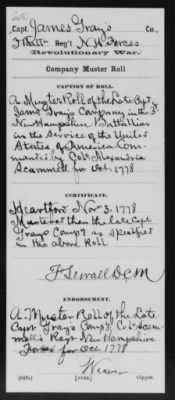 Capt. James Gray's Co.,
3 Batt. Reg't N. H. Forces
Revolutionary War.
Company Muster Roll
CAPTION OF ROLL.
A Muster Roll of the late Capt
James Grays Company in the 3d
New Hampshire Battallion
in the Service of the United
States of America Com-
manded by Col. Alexandria
Scammell for Oct. 1778
CERTIFICATE.
Heartford Nov 3. 1778
Mustered then the late Capt
Grays Comp'y as specified
in the above Roll.
F Sewall D C M
ENDORSEMENT.
A Muster Roll of the late
Capt Gray's Comp'y Col. Scam-
mell's Regt New Hampshire
for Oct 1778
(545c) [OVER] Copyist.